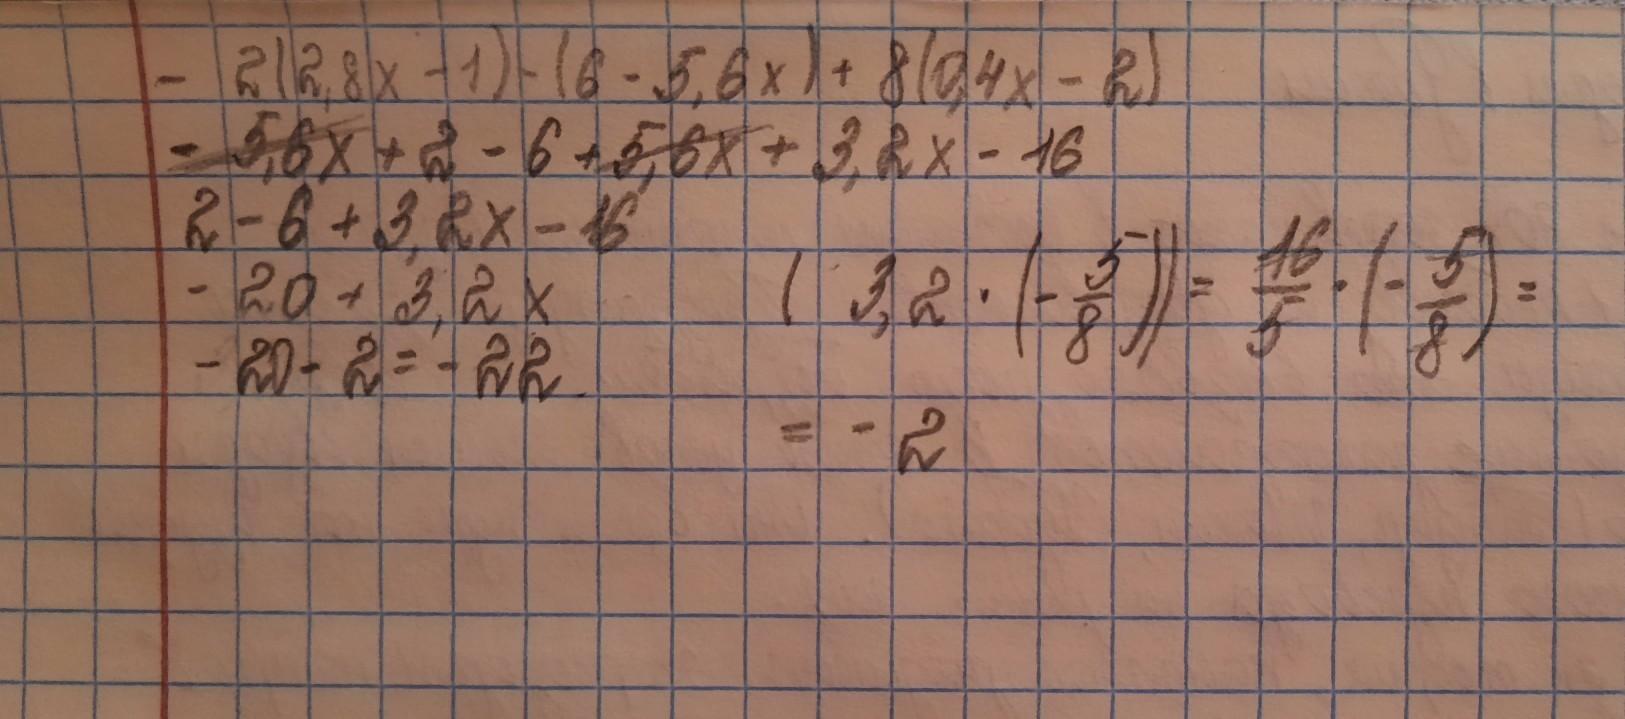 - 2(2,8x - 1) - (6 - 5,6x) + 8(0,4x - 2)
- 5,6x + 2 - 6 + 5,6x + 3,2x - 16
2 - 6 + 3,2x - 16
- 20 + 3,2x
- 20 - 2 = - 22
( 3,2 · (- 5/8)) = 16/5 · (- 5/8) =
= - 2